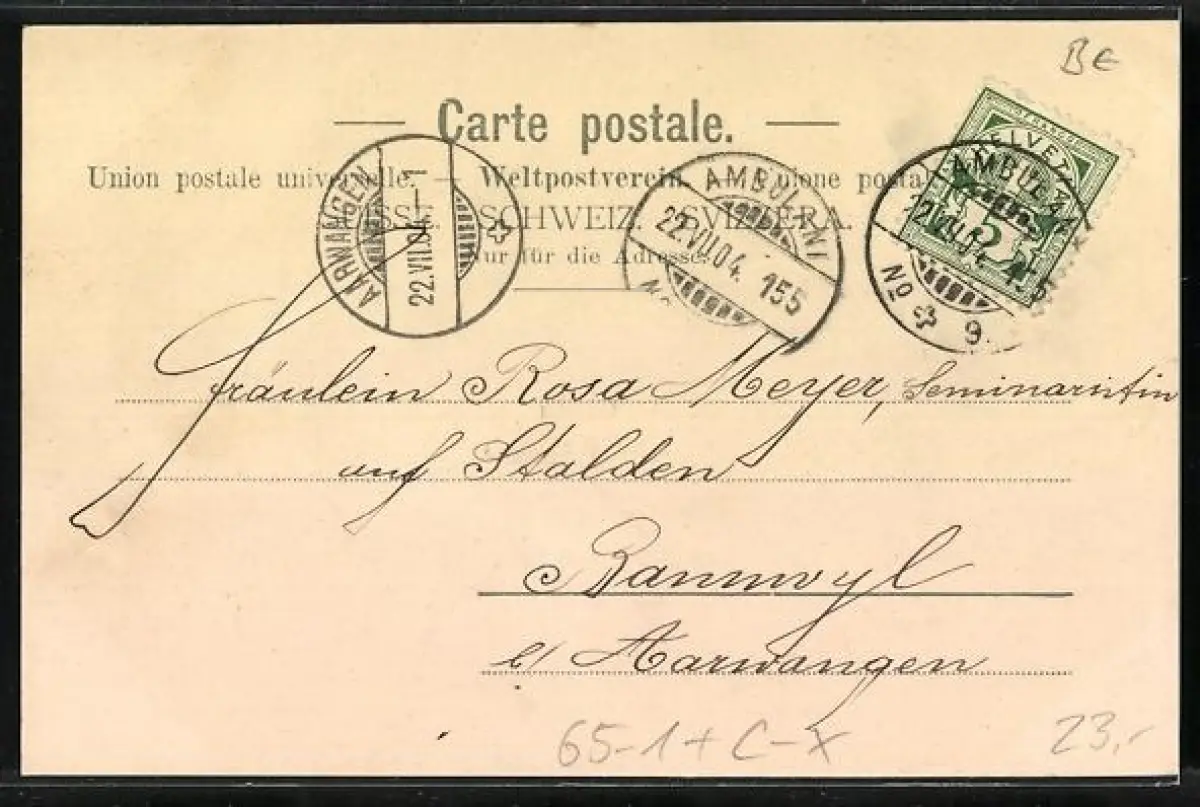 BE
Carte postale.
Union postale universelle. — Weltpostverein. — Unione postale
SUISSE. SCHWEIZ. SVIZZERA.
Nur für die Adresse.
AARWANGEN
22.VII.04.–1
AMBULANT
22.VII.04. 155
No
FRANCO
HELVETIA
5
AMBULANT
22.VII.04 155
No 9.
Fräulein Rosa Meyer, Seminaristin
auf Stalden
Bannwyl
b/ Aarwangen
65-1+C-X
23,-